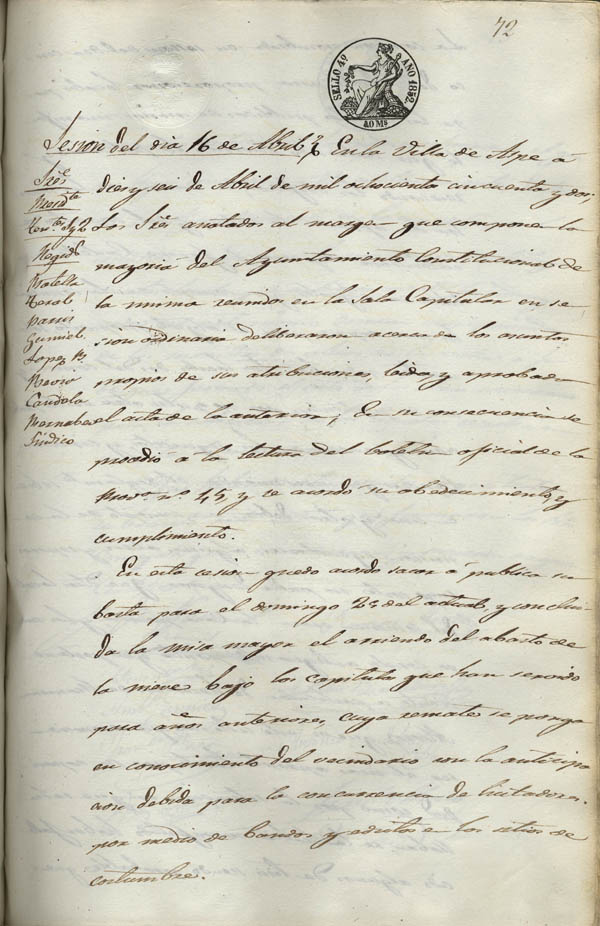 72
SELLO 4º AÑO 1852.
40 Ms
Sesion del dia 16 de Abril.
En la Villa de Aspe á
diez y seis de Abril de mil ochocientos cincuenta y dos;
los Sres anotados al margen que componen la
mayoria del Ayuntamiento Constitucional de
la misma reunidos en la Sala Capitular en se
sion ordinaria deliberaron acerca de los asuntos
propios de sus atribuciones, leida y aprobada
el acta de la anterior; En su consecuencia se
procedió á la lectura del boletin oficial de la
Prova nº 45, y se acordó su obedecimiento y
cumplimiento.
En esta cesion quedo acordo sacar á publica su
basta para el domingo 25 del actual, y conclui
da la misa mayor el arriendo del abasto de
la nieve bajo los capitulos que han servido
para años anteriores, cuyo remate se ponga
en conocimiento del vecindario con la anticipa
cion debida para la concurrencia de licitadores.
por medio de bandos y edictos en los sitios de
costumbre.
Sres
Presidte
Tentes 1º y 2º
Regids
Botella
Terol
Pavis
Gumiel
Lopez
Candela
Bernabeu
Sindico